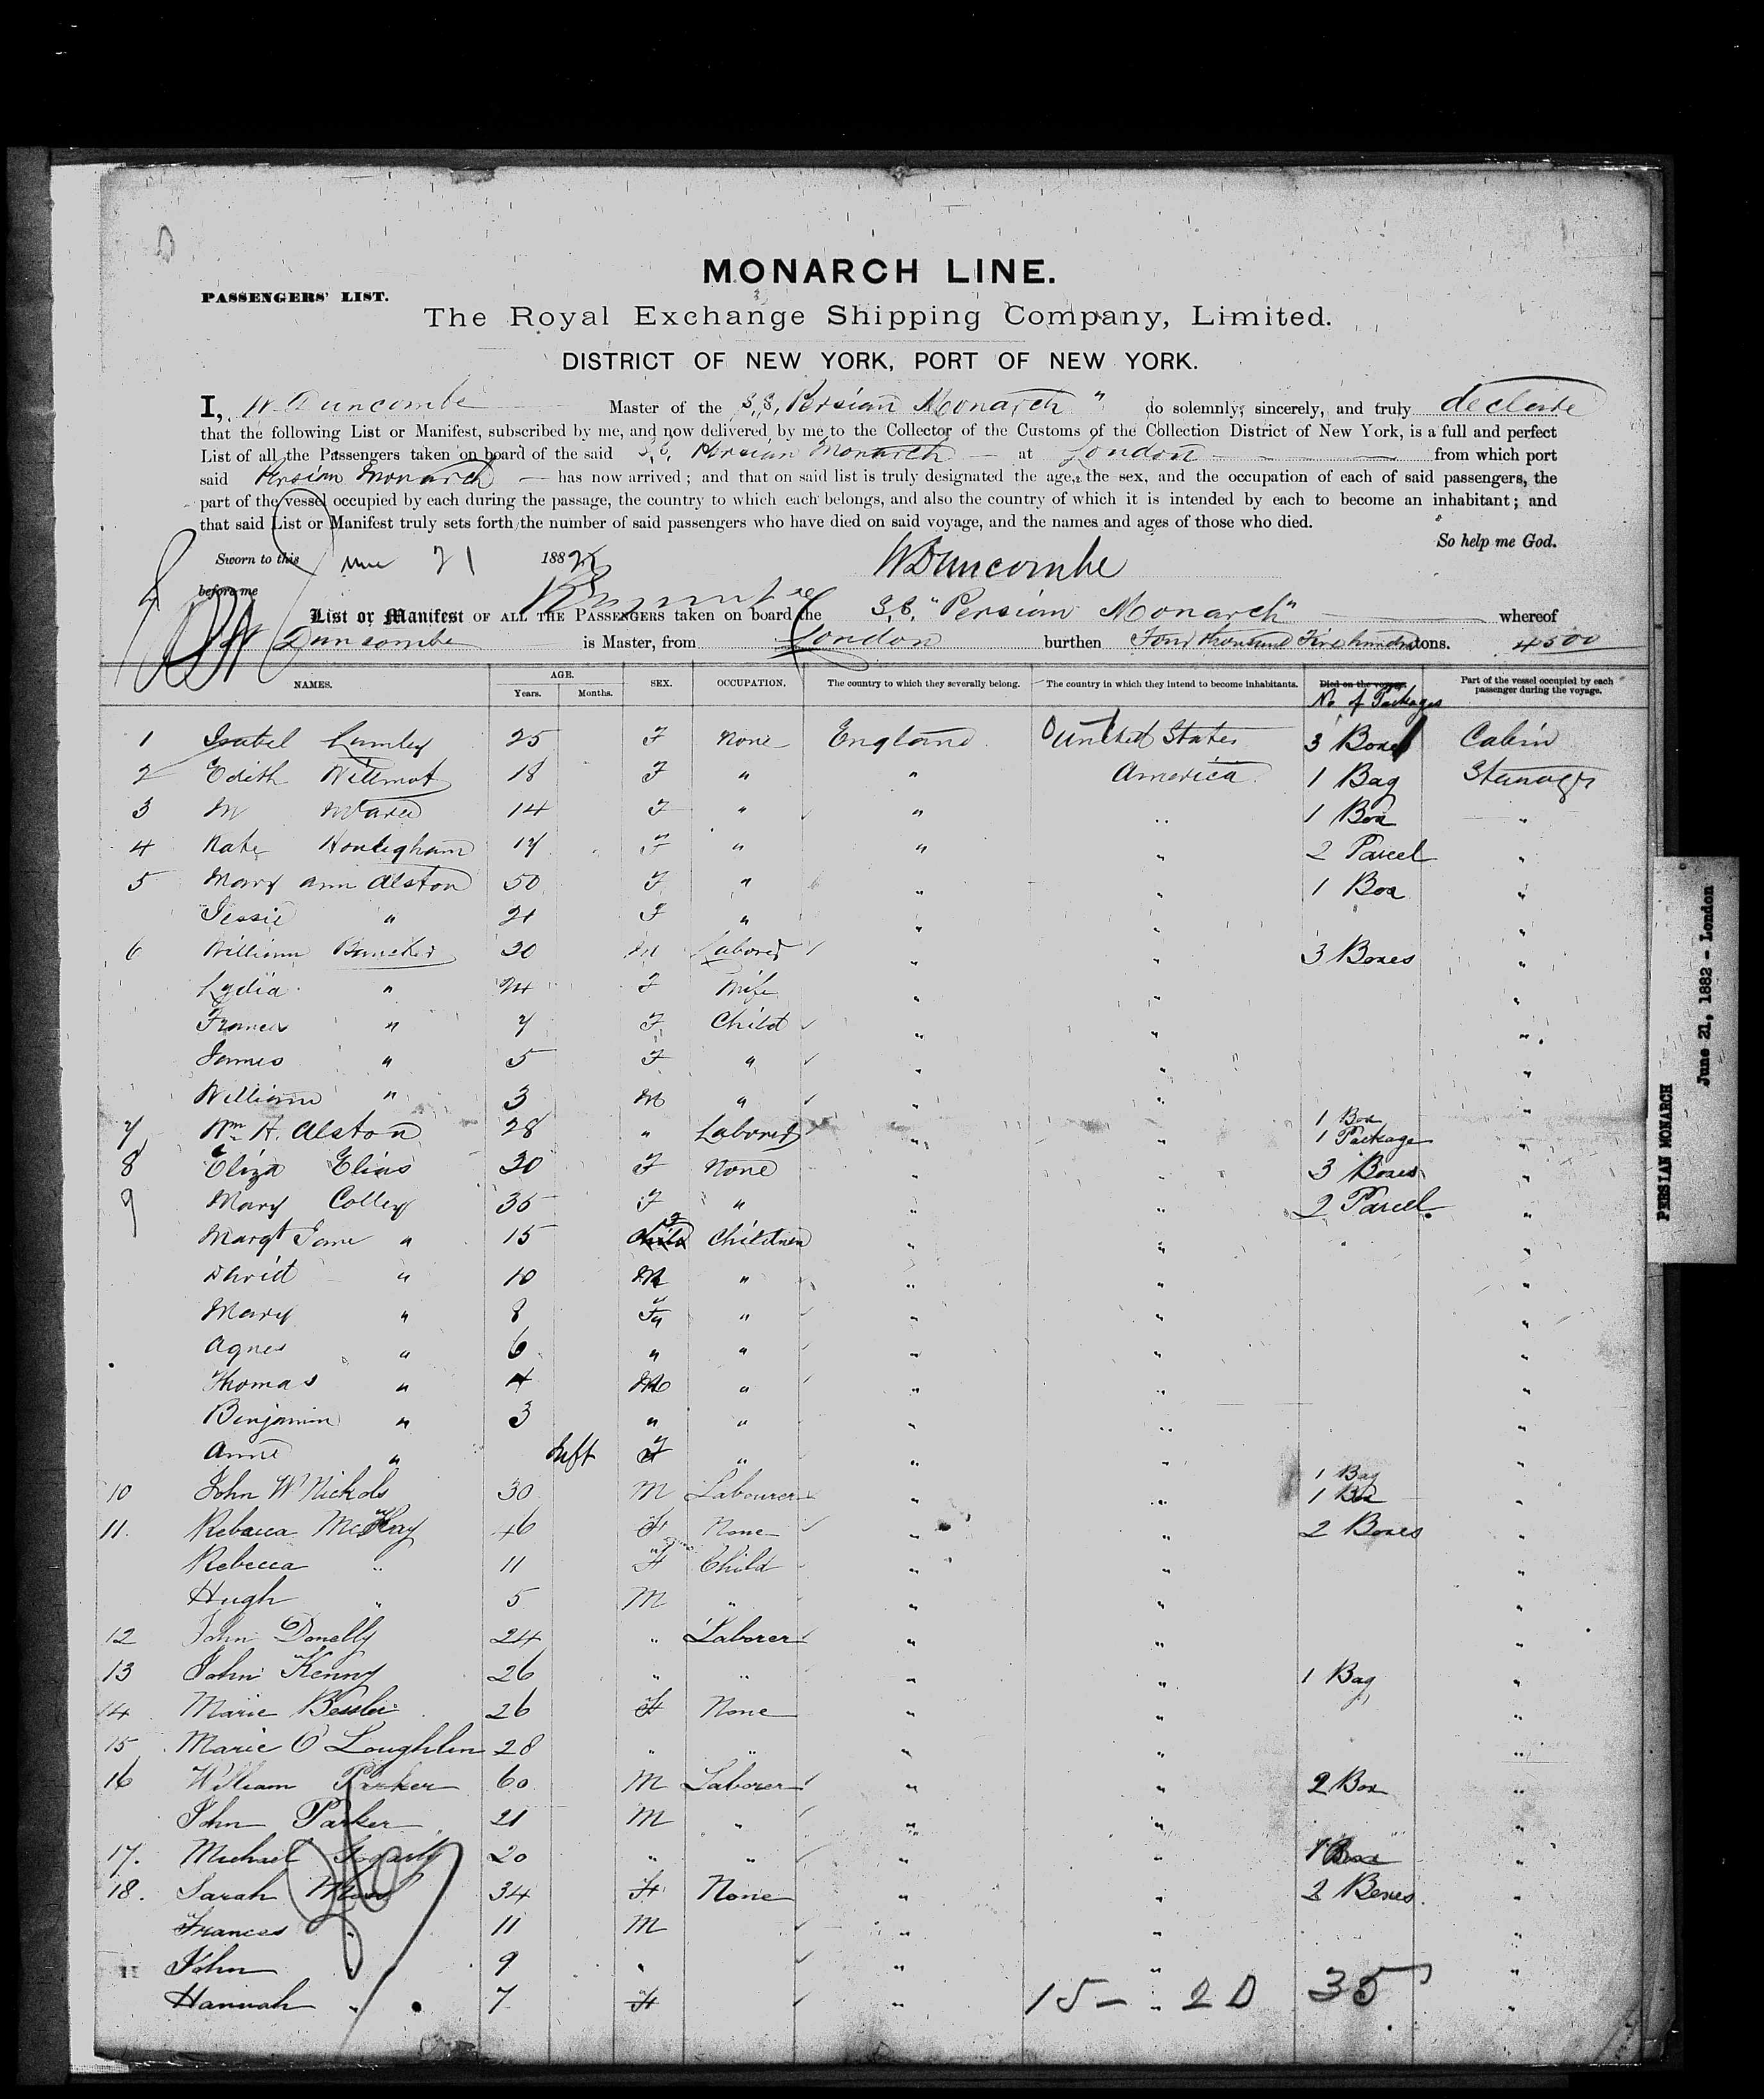 MONARCH LINE.
PASSENGERS' LIST.
The Royal Exchange Shipping Company, Limited.
DISTRICT OF NEW YORK, PORT OF NEW YORK.
I, W. Duncombe Master of the S.S. Persian Monarch " do solemnly, sincerely, and truly declare
that the following List or Manifest, subscribed by me, and now delivered by me to the Collector of the Customs of the Collection District of New York, is a full and perfect
List of all the Passengers taken on board of the said S.S. Persian Monarch at London from which port
said Persian Monarch has now arrived; and that on said list is truly designated the age, the sex, and the occupation of each of said passengers, the
part of the vessel occupied by each during the passage, the country to which each belongs, and also the country of which it is intended by each to become an inhabitant; and
that said List or Manifest truly sets forth the number of said passengers who have died on said voyage, and the names and ages of those who died.
So help me God.
Sworn to this June 21 1882
WDuncombe
before me
List or Manifest OF ALL THE PASSENGERS taken on board the S.S. "Persian Monarch" whereof
W Duncombe is Master, from London burthen Four thousand Five hundred tons. 4500
NAMES. AGE. Years. Months. SEX. OCCUPATION. The country to which they severally belong. The country in which they intend to become inhabitants. Died on the voyage. No of Packages Part of the vessel occupied by each passenger during the voyage.
1 Isabel Lumley 25 F None England United States 3 Boxes Cabin
2 Edith Willmot 18 F " " America 1 Bag Steerage
3 M 14 F " " " 1 Box "
4 Kate 17 F " " " 2 Parcel "
5 Mary Ann Alston 50 F " " " 1 Box "
Jessie " 21 F " " " "
6 William 30 M Laborer " " 3 Boxes "
Lydia " 24 F Wife " " "
Frances " 7 F Child " " "
James " 5 F " " " "
William " 3 M " " " "
7 Wm H. Alston 28 " Laborer " " 1 Box 1 Package "
8 Eliza Elias 30 F None " " 3 Boxes "
9 Mary Colley 35 F " " " 2 Parcel "
Margt Jane " 15 F Children " " "
David " 10 M " " " "
Mary " 8 F " " " "
Agnes " 6 " " " " "
Thomas " 4 M " " " "
Benjamin " 3 " " " " "
Anne " Inft F " " " "
10 John W Nichols 30 M Labourer " " 1 Bag 1 Box "
11. Rebecca McKay 46 F None " " 2 Boxes "
Rebecca " 11 F Child " " "
Hugh " 5 M " " " "
12 John Donelly 24 " Laborer " " "
13 John Kenny 26 " " " " 1 Bag "
14 Marie 26 F None " " "
15 Marie O'Loughlin 28 " " " " "
16 William Parker 60 M Laborer " " 2 Box "
John Parker 21 M " " " "
17. Michael Fogarty 20 " " " " 1 Box "
18. Sarah 34 F None " " 2 Boxes "
Frances " 11 M " " "
John 9 " " " "
Hannah " 7 F " " "
15 - 20 35
PERSIAN MONARCH
June 21, 1882 - London